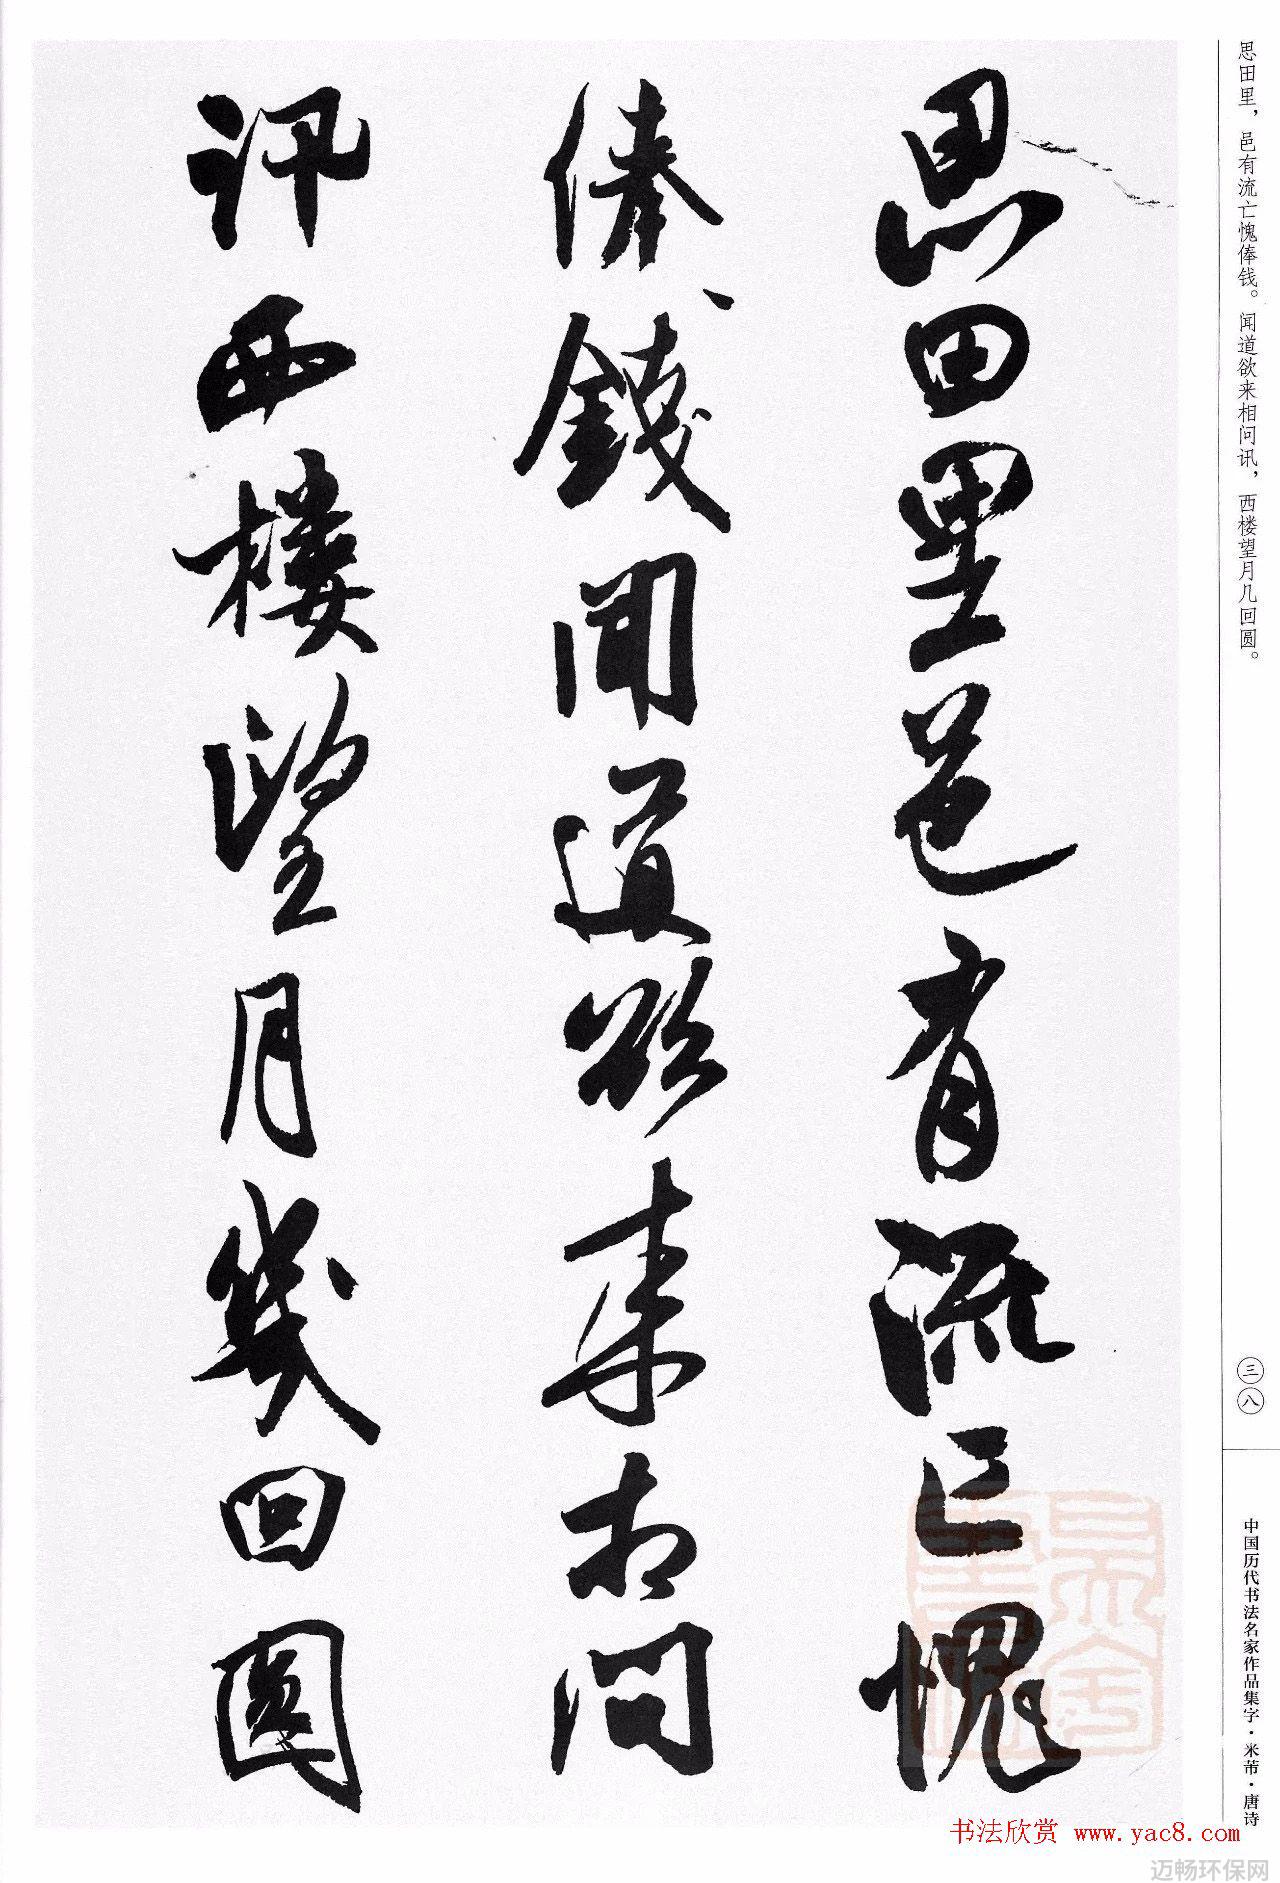 思田里，邑有流亡愧俸钱。闻道欲来相问讯，西楼望月几回圆。
思田里邑有流亡愧
俸錢聞道欲来相問
訊西樓望月幾回圓
三八
中国历代书法名家作品集字·米芾·唐诗
书法欣赏 www.yac8.com
迈畅环保网